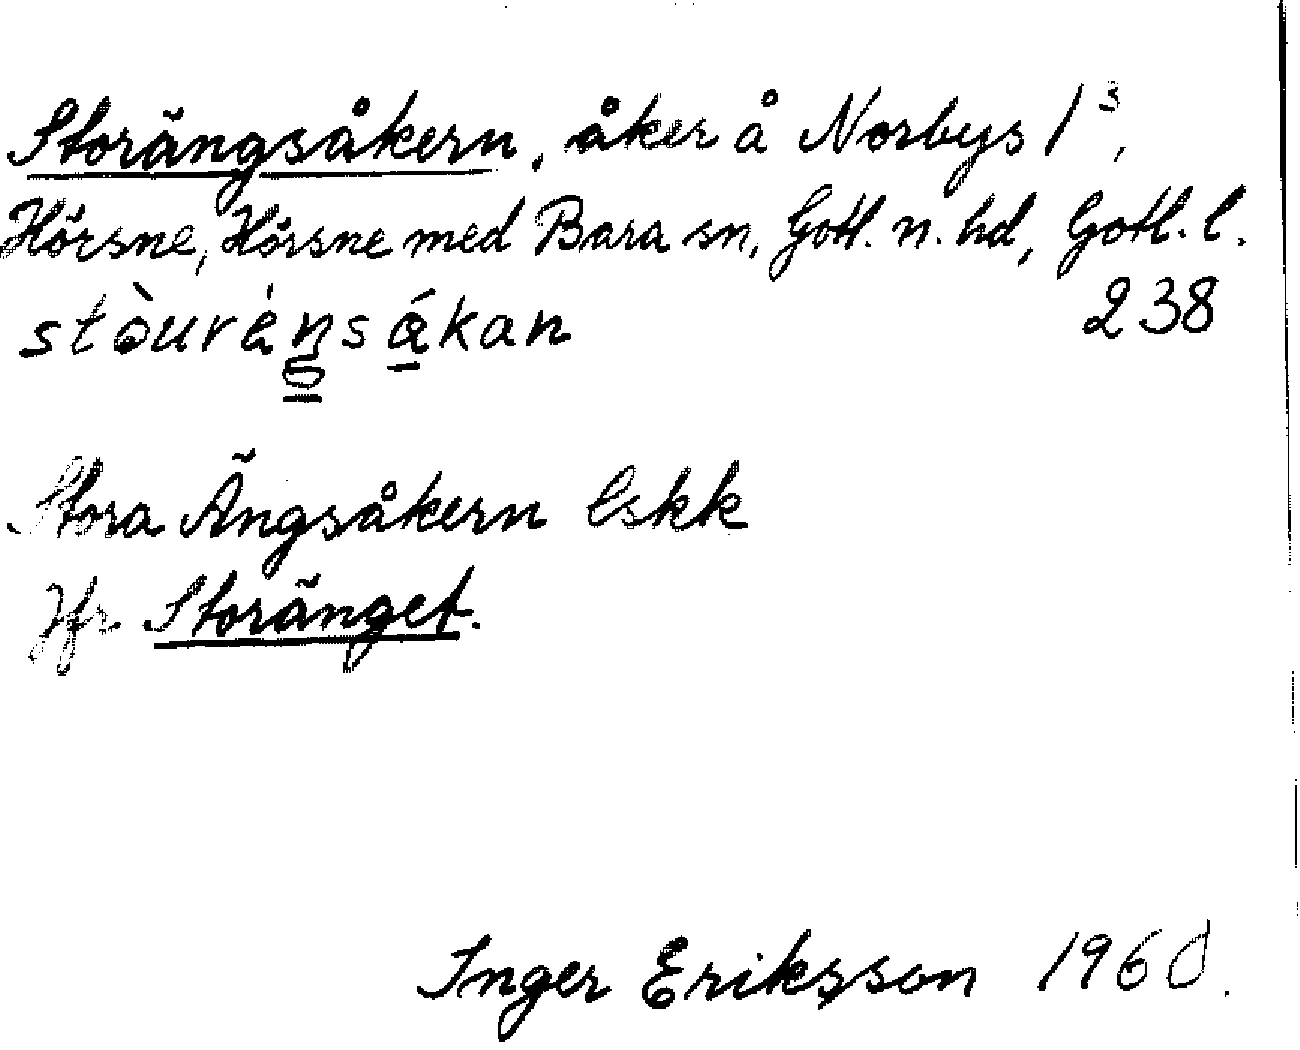 Storängsåkern, åker å Norbys 1³,
Hörsne, Hörsne med Bara sn, Gotl. n. hd, Gotl. l.
stòurèŋsákan 238
Stora Ängsåkern Eskk
Jfr Storänget.
Inger Eriksson 1960.